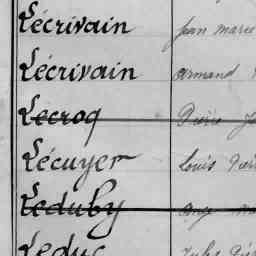 Lécrivain Jean Marie
Lécrivain Armand
Lecroq Pierre
Lécuyer Louis Pier
Leduby Ange Ma
Leduc Jules